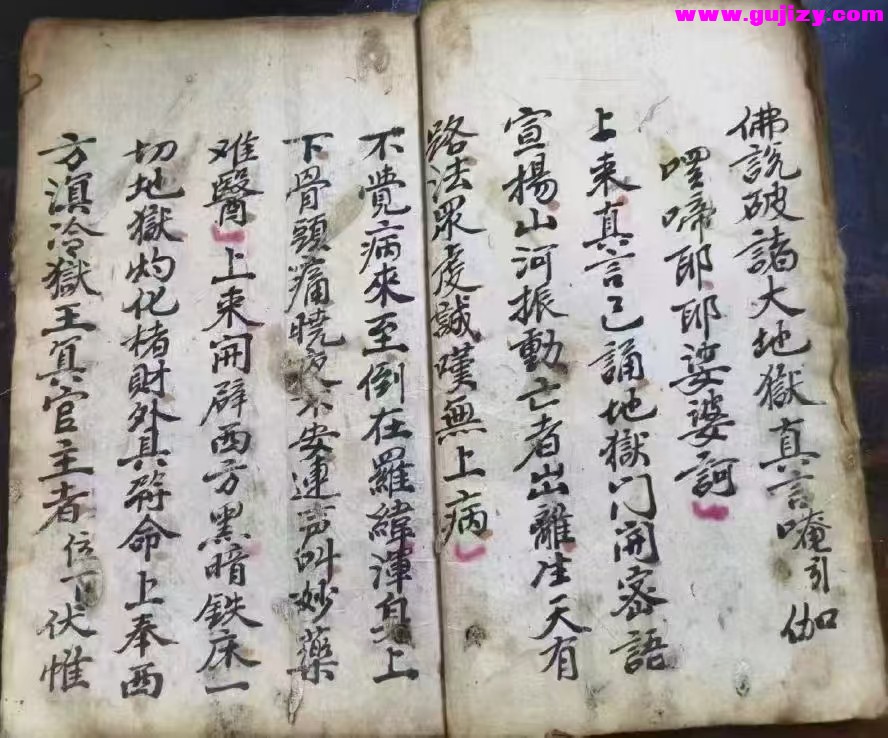 www.gujizy.com
佛說破諸大地獄真言唵引伽
嘿啼耶耶娑婆訶
上来真言已誦地獄門開密語
宣揚山河振動亡者出離生天有
路法眾虔誠嘆無上病
不覺病來至倒在羅緯渾身上
下骨頭痛曉夜不安連声叫妙藥
难醫上来開辟西方黑暗鉄床一
切地獄灼化楮財外具符命上奉西
方滇冷獄王冥官主者位下伏惟